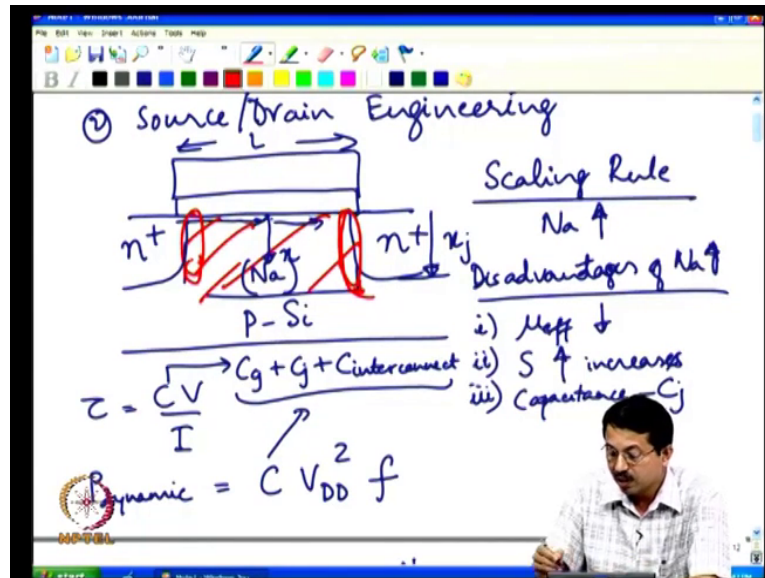 Note1 - Windows Journal
File Edit View Insert Actions Tools Help
B I
② Source/Drain Engineering
L
n+
n+
xj
x
(Na)
P-Si
Scaling Rule
Na ↑
Disadvantages of Na ↑
i) μeff ↓
ii) S ↑ increases
iii) Capacitance - Cj
τ = CV/I → Cg + Cj + Cinterconnect
Pdynamic = C VDD² f
NPTEL
12
start